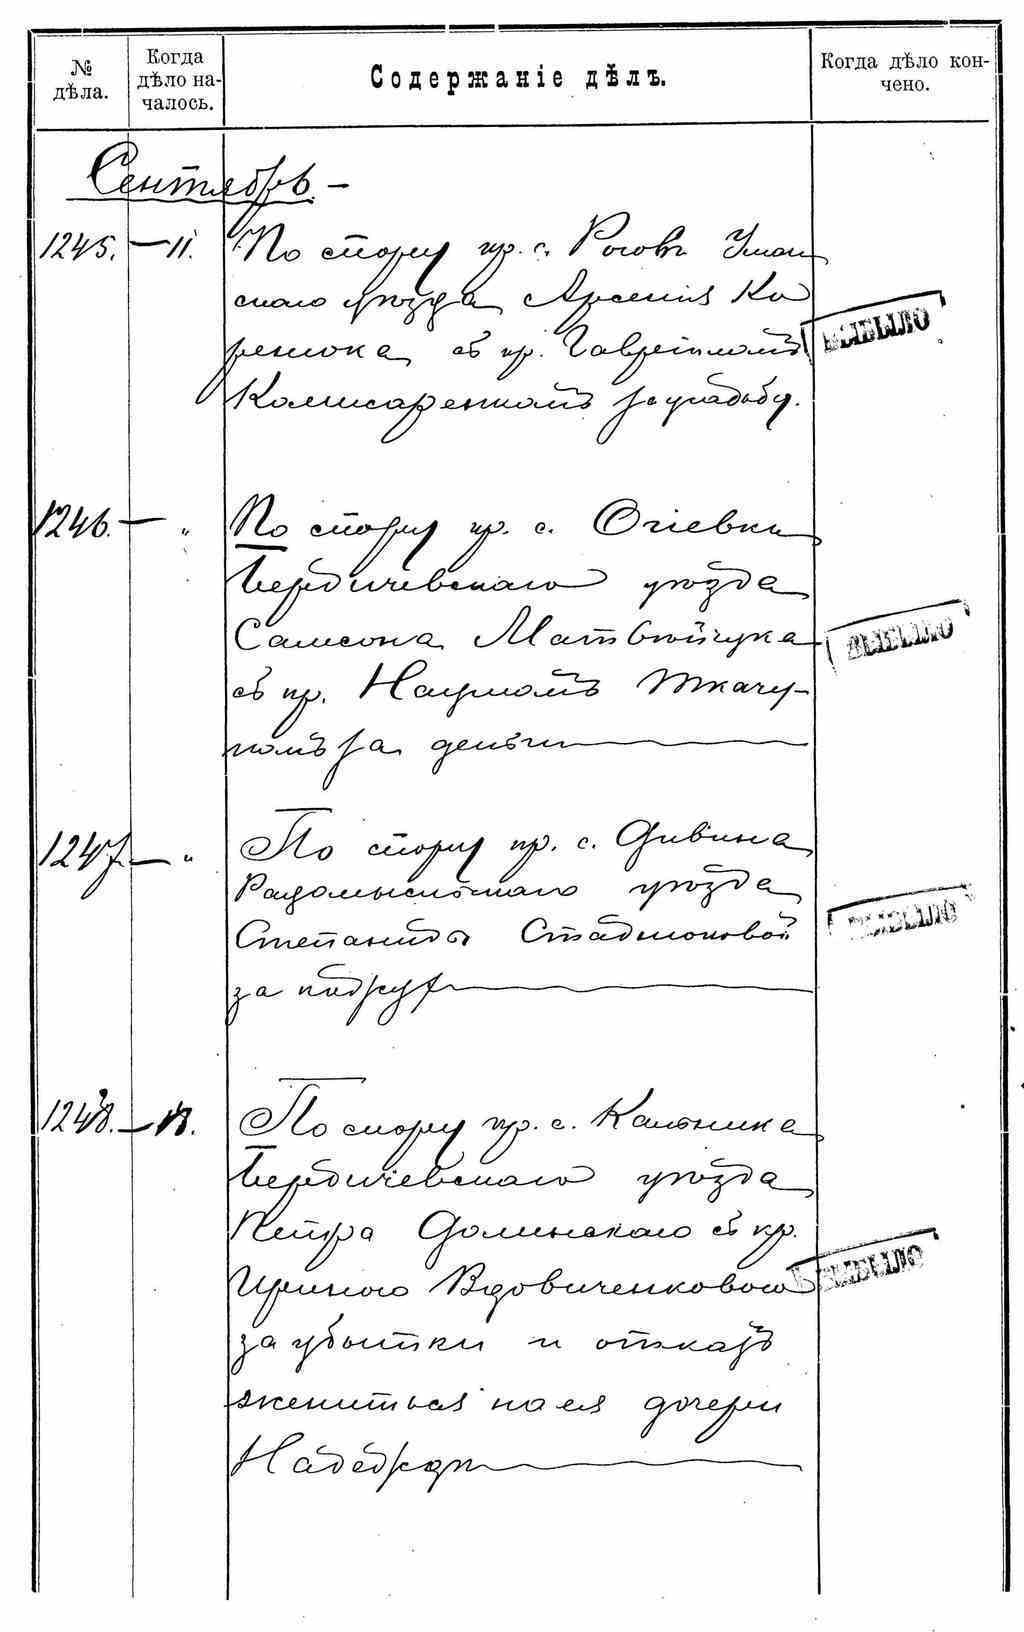 № дѣла.
Когда дѣло на-
чалось.
Содержаніе дѣлъ.
Когда дѣло кон-
чено.
Сентябрь. –
1245. – 11. По спору кр. с. Роговъ Уман
скаго уѣзда Арсенія Ко
ренюка съ кр. Гавріиломъ
Комисаренкомъ за усадьбу.
ВЫБЫЛО
1246. – „ По спору кр. с. Огіевки
Бердичевскаго уѣзда
Самсона Матвѣйчука
съ кр. Наумомъ Ткачу-
комъ за деньги
ВЫБЫЛО
1247 – „ По спору кр. с. Дивина
Радомысльскаго уѣзда
Степаниды Стадниковой
за
ВЫБЫЛО
1248. – 18. По спору кр. с. Кальника
Бердичевскаго уѣзда
Петра Долинскаго съ кр.
Ириною Вдовиченковою
за убытки и отказъ
жениться на ея дочери
ВЫБЫЛО